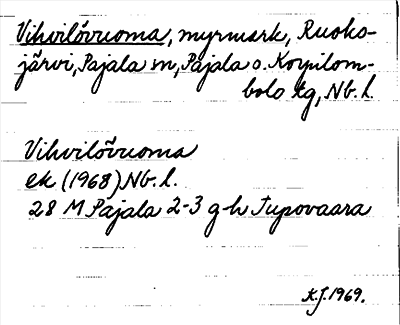 Vihvilövuoma, myrmark, Ruoko-
järvi, Pajala sn, Pajala o. Korpilom-
bolo tg, Nb. l.
Vihvilövuoma
ek (1968) Nb. l.
28 M Pajala 2-3 g-h Tupovaara
K.J. 1969.